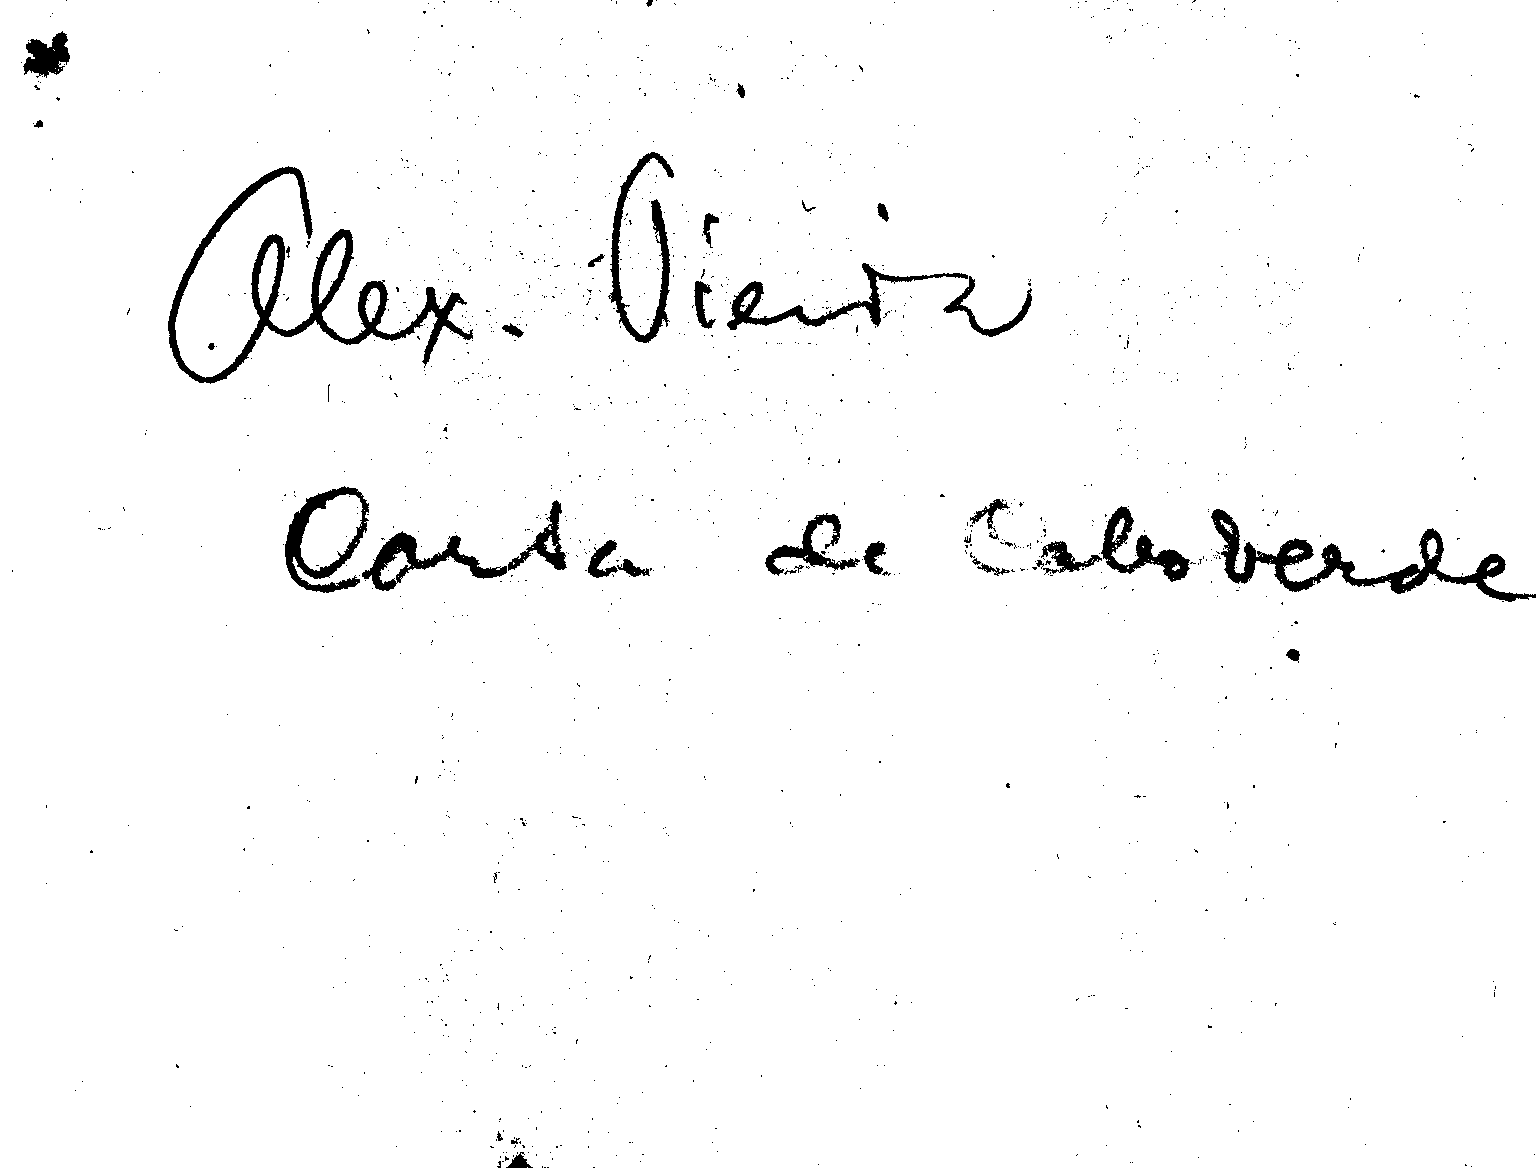 Alex. Vieira
Carta de Caboverde